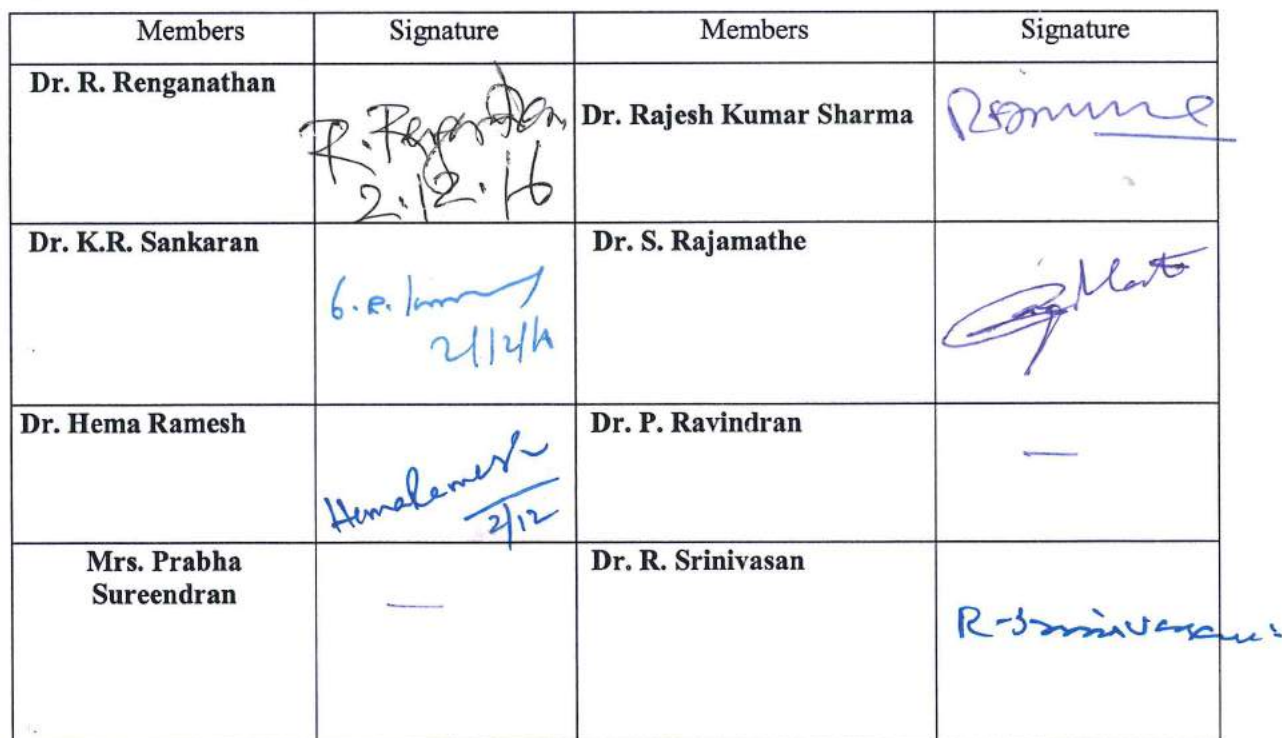 Members Signature Members Signature
Dr. R. Renganathan
R. Renganathan
2.12.16
Dr. Rajesh Kumar Sharma
Dr. K.R. Sankaran
2/12/16
Dr. S. Rajamathe
Dr. Hema Ramesh
HemaRamesh
2/12
Dr. P. Ravindran
—
Mrs. Prabha
Sureendran
—
Dr. R. Srinivasan
R-Srinivasan